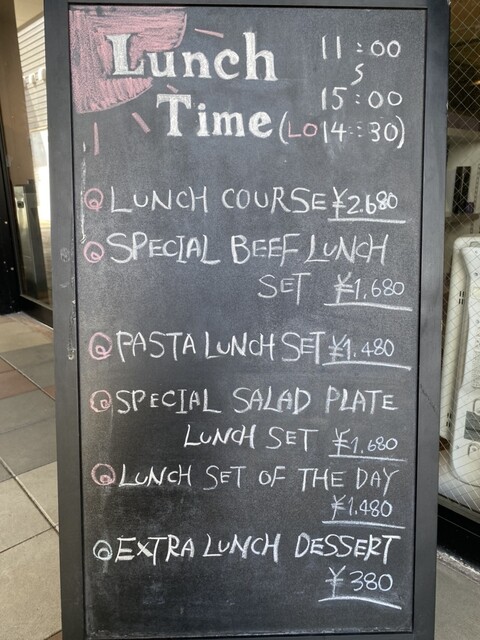 Lunch 11:00
Time 15:00
(LO14:30)
LUNCH COURSE ¥2.680
SPECIAL BEEF LUNCH
SET ¥1.680
PASTA LUNCH SET ¥1.480
SPECIAL SALAD PLATE
LUNCH SET ¥1.680
LUNCH SET OF THE DAY
¥1.480
EXTRA LUNCH DESSERT
¥380